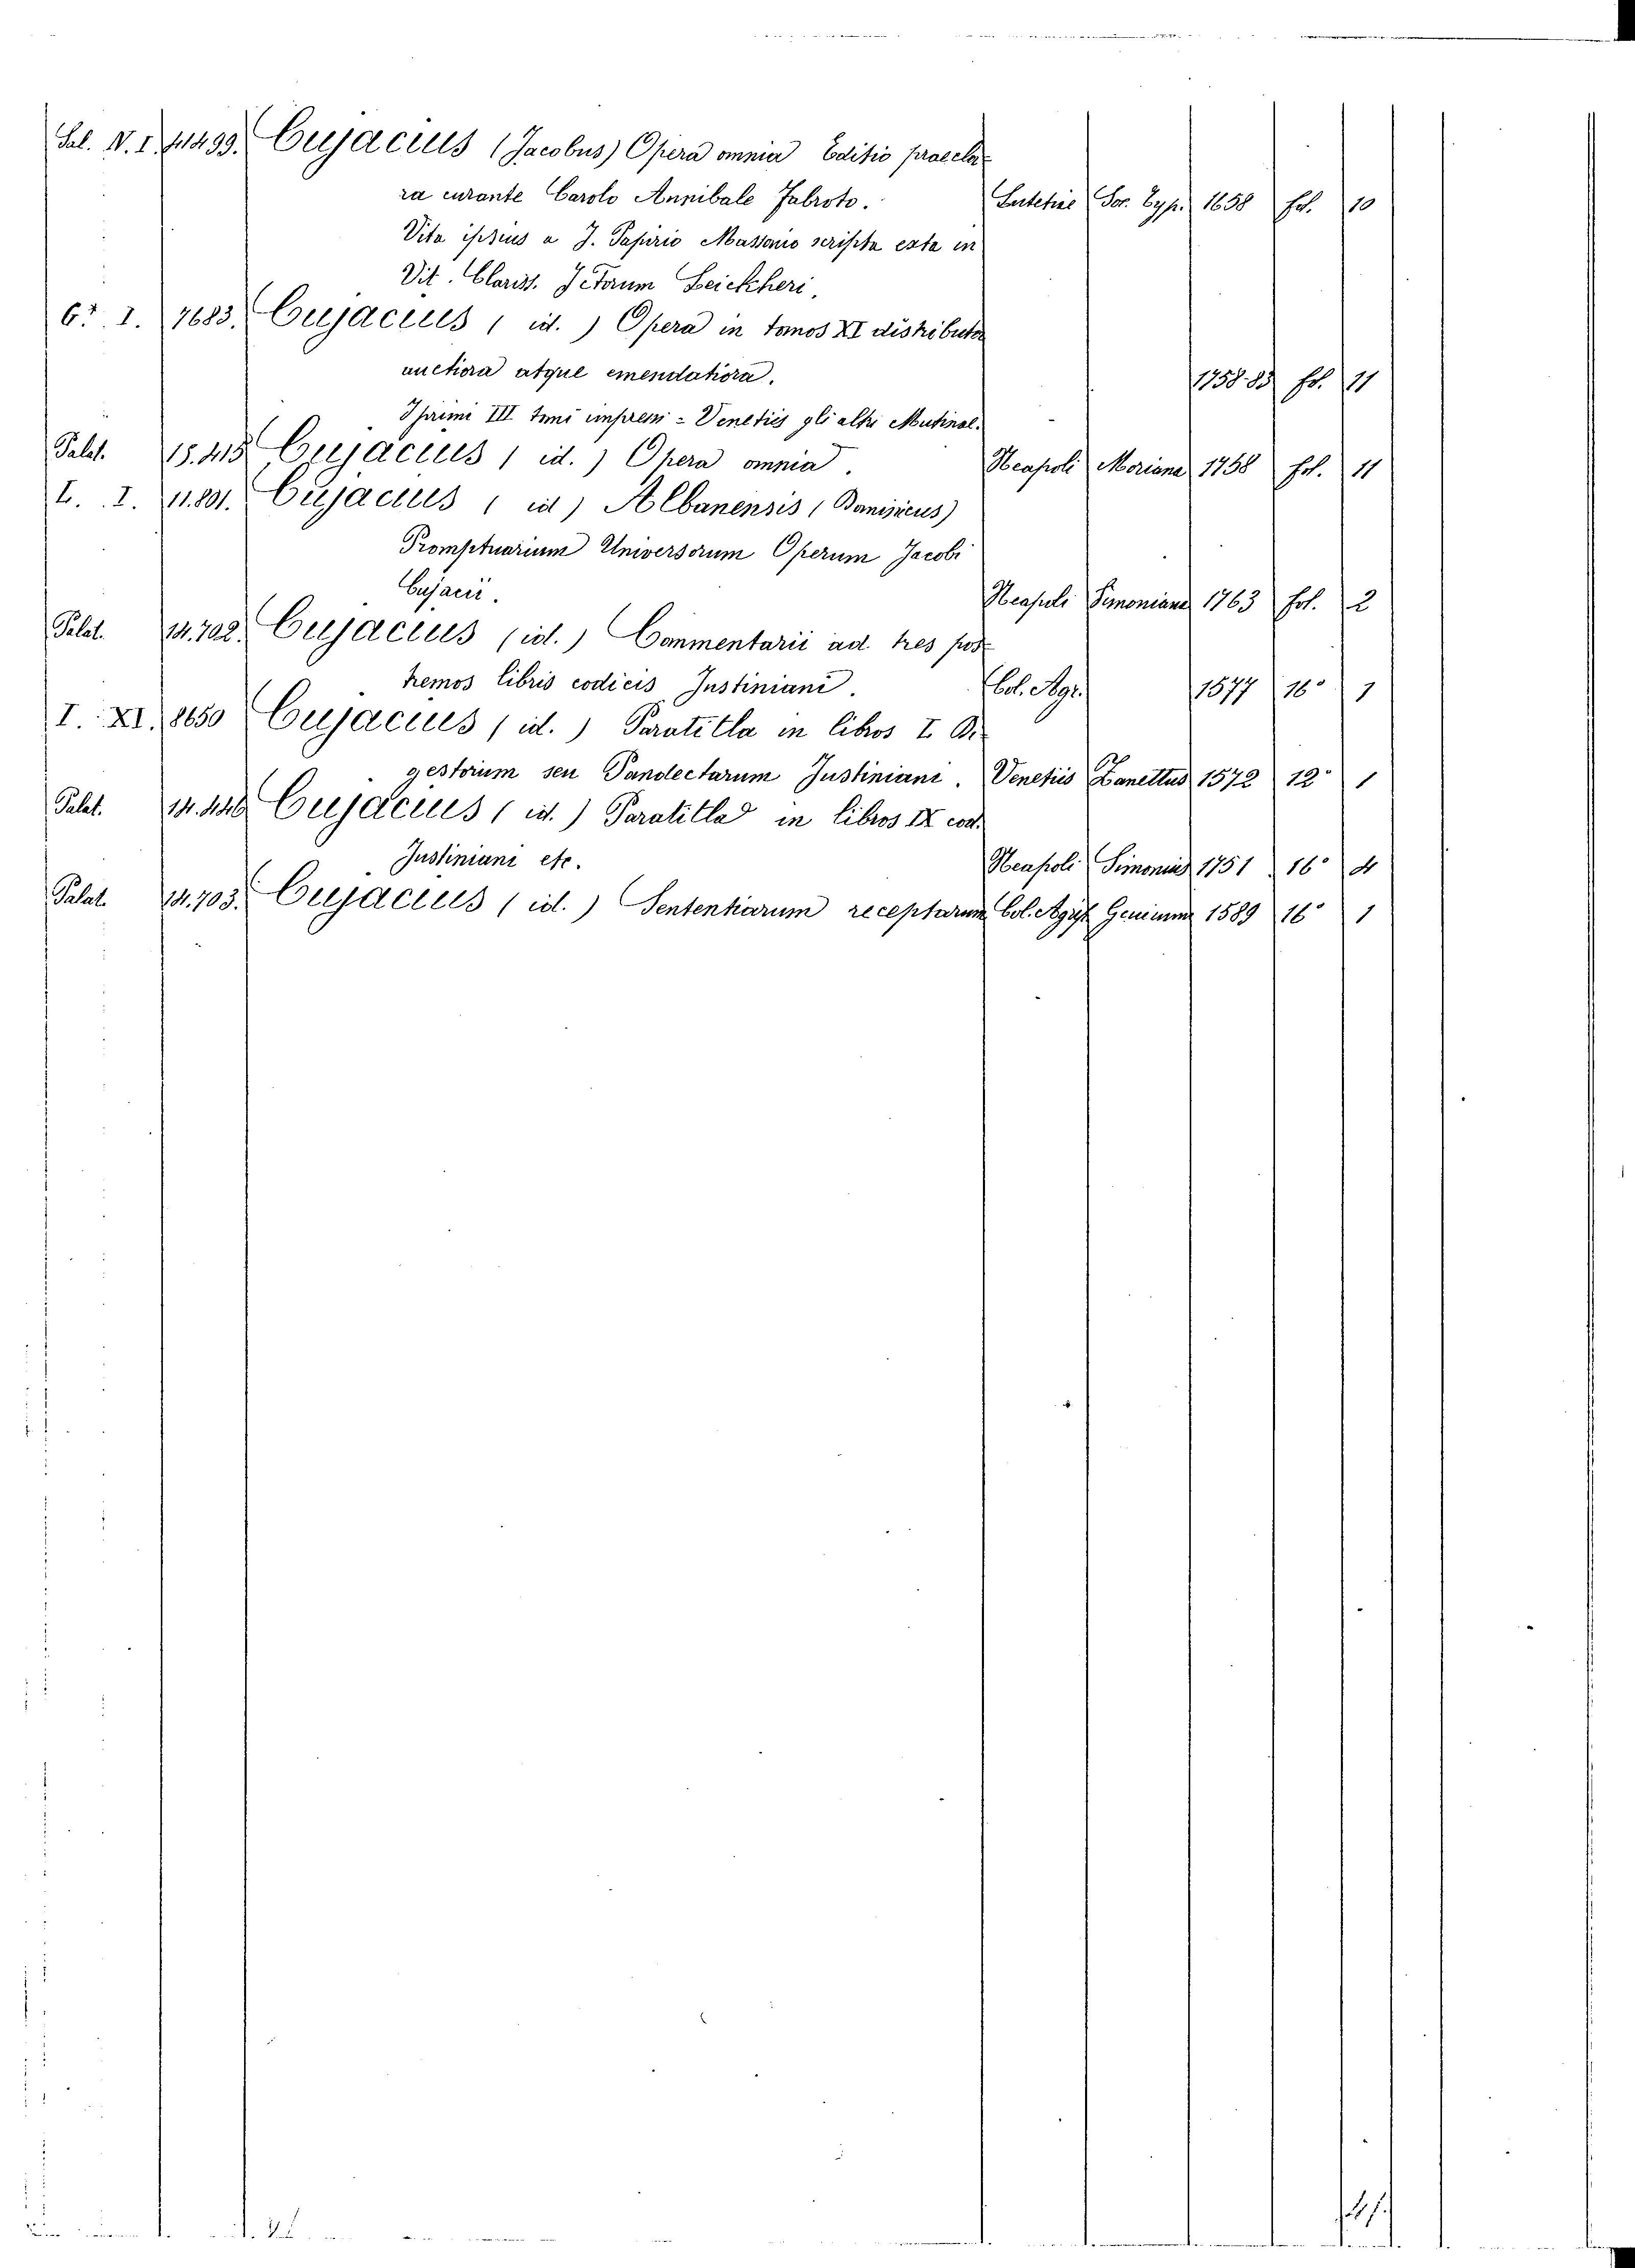 Sal. N. I. 11499. Cujacius (Jacobus) Opera omnia Editio praecla-
ra curante Carolo Annibale Fabroto. Lutetiae Soc. Typ. 1658 fol. 10
Vita ipsius a J. Papirio Massonio scripta exta in
Vit. Clariss. Jctorum Leickheri,
6ª I. 7683. Cujacius ( id. ) Opera in tomos XI distributa
auctiora atque emendatiora. 1758-83 fol. 11
I primi III tomi impressi = Venetiis gli altri Mutinae.
Palat. 15.415 Cujacius ( id. ) Opera omnia. Neapoli Moriana 1758 fol. 11
L. I. 11.801. Cujacius ( id ) Albanensis (
Promptuarium Universorum Operum Jacobi
Cujacii. Neapoli Simoniana 1763 fol. 2
Palat. 14.702. Cujacius (id.) Commentarii ad tres pos-
tremos libris codicis Justiniani. Col. Agr. 1577 16° 1
I. XI. 8650 Cujacius ( id. ) Paratitla in libros L Di-
gestorum seu Pandectarum Justiniani. Venetiis Zanettus 1572 12° 1
Palat. 14.446 Cujacius ( id. ) Paratitla in libros IX cod.
Justiniani etc. Neapoli Simonius 1751 16° 4
Palat. 14.703. Cujacius ( id. ) Sententiarum receptarum Col. Agrip. 1589 16° 1